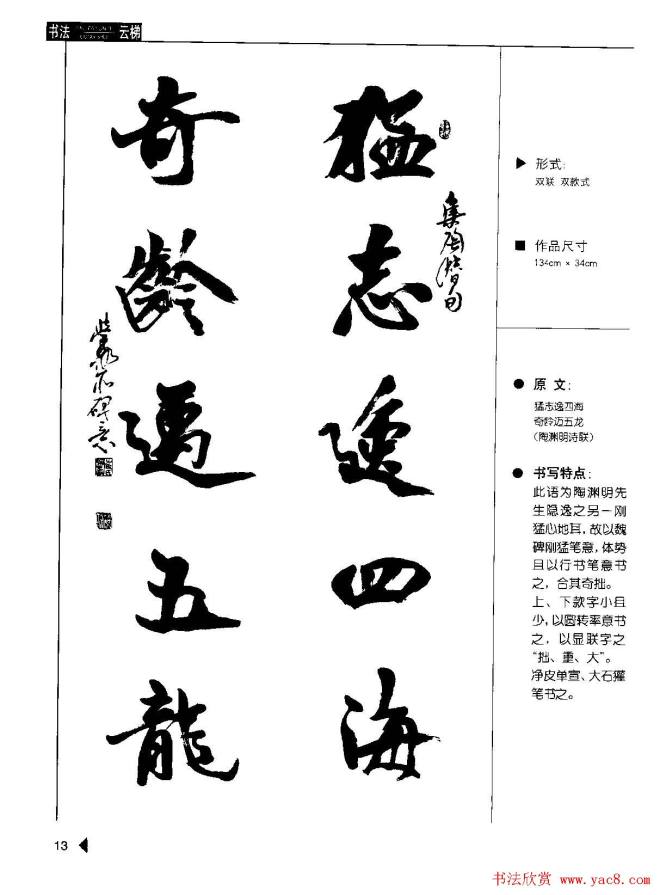 书法 云梯
猛志逸四海
集陶潜句
奇龄迈五龙
▶ 形式:
双联 双款式
■ 作品尺寸
134cm × 34cm
● 原文:
猛志逸四海
奇龄迈五龙
(陶渊明诗联)
● 书写特点:
此语为陶渊明先
生隐逸之另一刚
猛心地耳，故以魏
碑刚猛笔意，体势
且以行书笔意书
之，合其奇拙。
上、下款字小且
少，以圆转率意书
之，以显联字之
“拙、重、大”。
净皮单宣、大石獾
笔书之。
13
书法欣赏 www.yac8.com